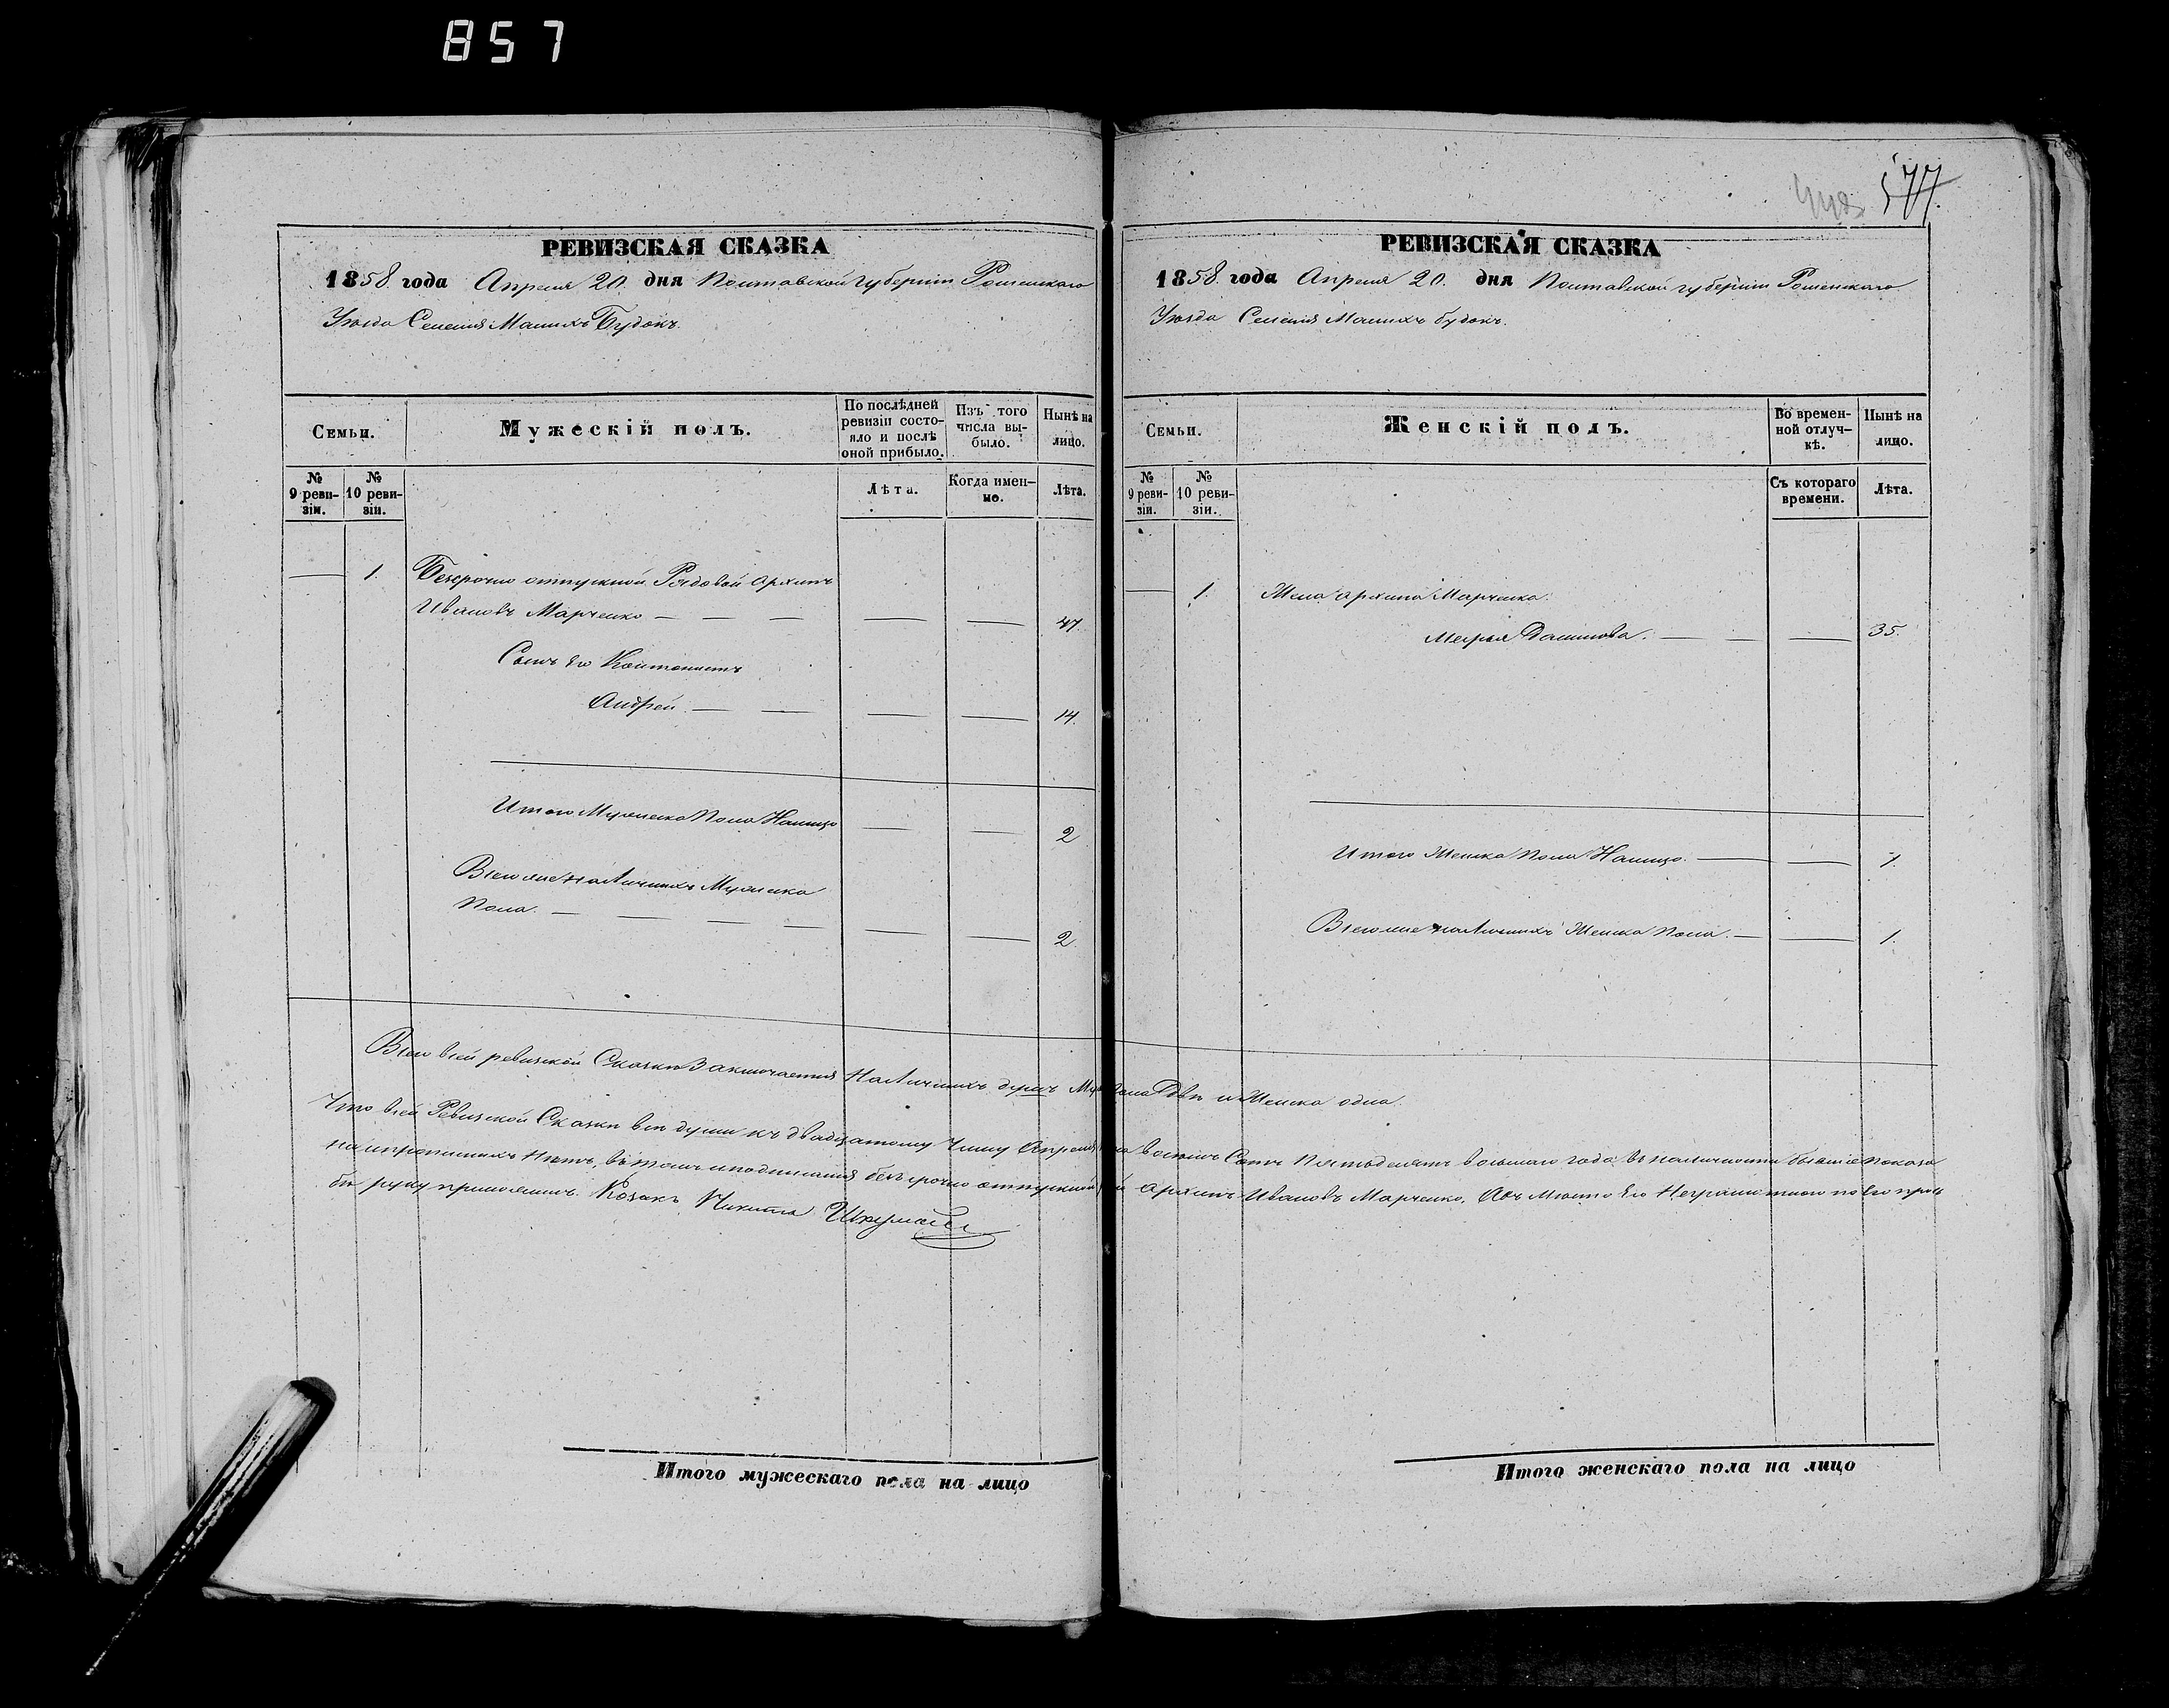 857
577.
РЕВИЗСКАЯ СКАЗКА
1858. года Апреля 20. дня Полтавской губернiи Роменскаго
Уѣзда Селенiя Малыхъ Будокъ.
Семьи.
Мужескій полъ.
По послѣдней ревизіи состояло и послѣ оной прибыло.
Изъ того числа выбыло.
Нынѣ на лицо.
№ 9 ревизіи.
№ 10 ревизіи.
Лѣта.
Когда именно.
Лѣта.
1. Безсрочно отпускной Рядовой Архипъ
Ивановъ Марченко 47.
Сынъ Его Кантонистъ
Андрей 14.
Итого Мужеска Пола Налицо 2
Всего же наличныхъ Мужеска
Пола. 2.
РЕВИЗСКАЯ СКАЗКА
1858. года Апреля 20. дня Полтавской губернiи Роменскаго
Уѣзда Селенiя Малыхъ будокъ.
Семьи.
Женскій полъ.
Во временной отлучкѣ.
Нынѣ на лицо.
№ 9 ревизіи.
№ 10 ревизіи.
Съ котораго времени.
Лѣта.
1. Жена Архипа Марченка.
Марья Данилова. 35.
Итого Женска пола Налицо. 1.
Всего же наличныхъ Женска пола. 1.
Всего всей ревизской Сказки Заключается Наличныхъ душъ Муж пола Двѣ и Женска одна.
Что всей Ревизской Сказки всѣ души къ двадцатому Числу Апреля восемь Сотъ Пятьдесятъ восьмаго года въ наличности бывшiе показа
ны прописныхъ Нѣтъ, въ томъ и подписался безсрочно отпускной Архипъ Ивановъ Марченко, А въ Мѣсто Его Неграмотнаго по Его прозь
бѣ руку приложилъ. Козакъ Никита
Итого мужескаго пола на лицо
Итого женскаго пола на лицо